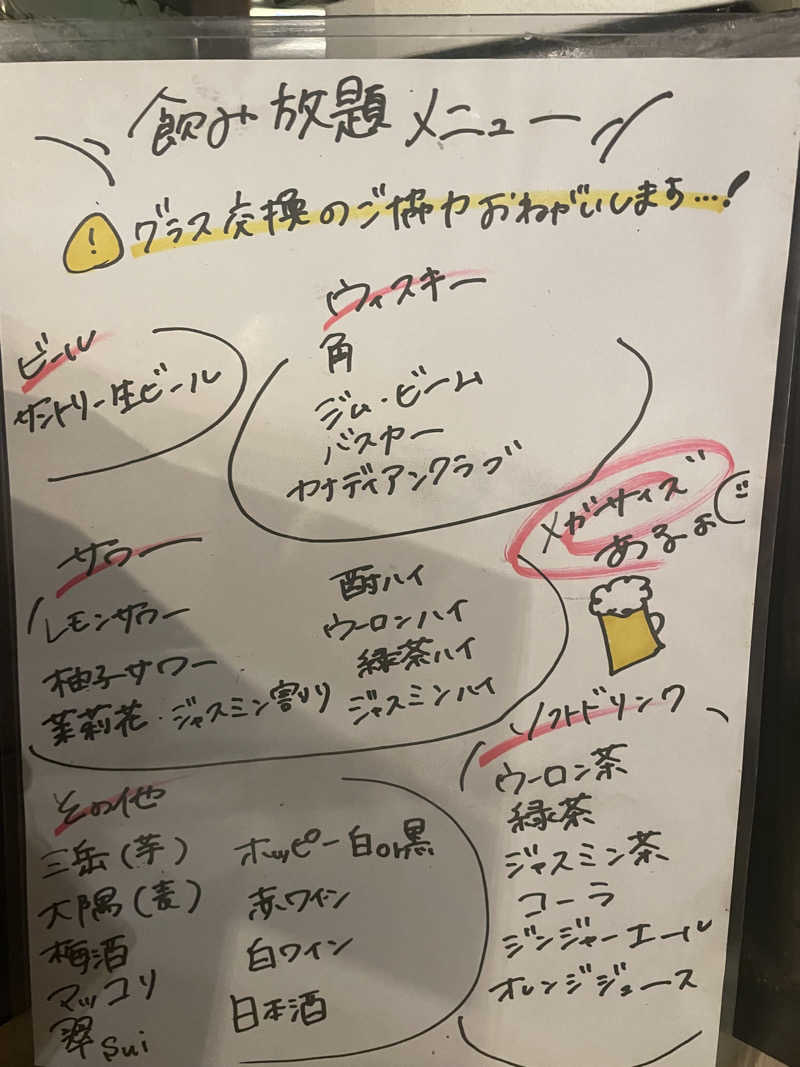 飲み放題メニュー
! グラス交換のご協力おねがいします…!
ビール
サントリー生ビール
ウィスキー
角
ジム・ビーム
バスカー
カナディアンクラブ
メガサイズ
あるよ
サワー
レモンサワー
柚子サワー
茉莉花・ジャスミン割り
酎ハイ
ウーロンハイ
緑茶ハイ
ジャスミンハイ
その他
三岳(芋)
大隅(麦)
梅酒
マッコリ
翠 Sui
ホッピー白or黒
赤ワイン
白ワイン
日本酒
ソフトドリンク
ウーロン茶
緑茶
ジャスミン茶
コーラ
ジンジャーエール
オレンジジュース